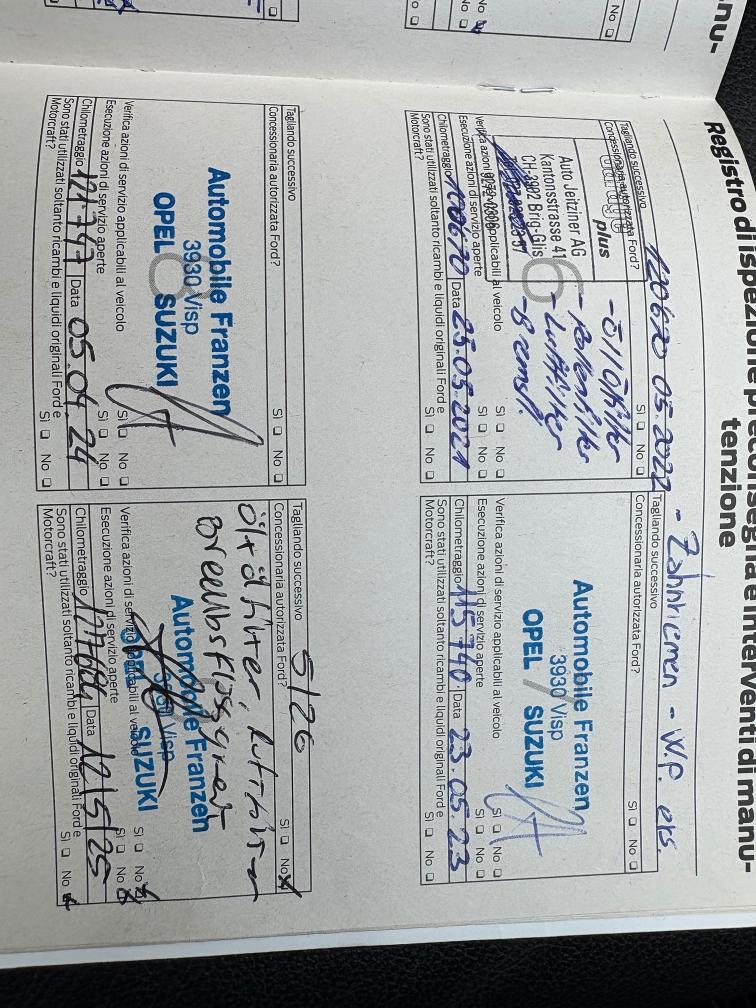 Registro di ispezione preconsegna e interventi di manu-
tenzione
120670 05.2022 - Zahnriemen - W.P. ers.
Tagliando successivo
Concessionaria autorizzata Ford? Sì No
Garage plus
Auto Jeitziner AG
Kantonsstrasse 41
CH-3902 Brig-Glis
- Öl/Ölfilter
- Pollenfilter
- Luftfilter
- Bremsfl.
6
Verifica azioni di servizio applicabili al veicolo Sì No
Esecuzione azioni di servizio aperte Sì No
Chilometraggio 100670 Data 25.05.2021
Sono stati utilizzati soltanto ricambi e liquidi originali Ford e
Motorcraft? Sì No
Tagliando successivo
Concessionaria autorizzata Ford? Sì No
Automobile Franzen
3930 Visp
OPEL SUZUKI
7
Verifica azioni di servizio applicabili al veicolo Sì No
Esecuzione azioni di servizio aperte Sì No
Chilometraggio 115740 Data 23.05.23
Sono stati utilizzati soltanto ricambi e liquidi originali Ford e
Motorcraft? Sì No
Tagliando successivo
Concessionaria autorizzata Ford? Sì No
Automobile Franzen
3930 Visp
OPEL SUZUKI
8
Verifica azioni di servizio applicabili al veicolo Sì No
Esecuzione azioni di servizio aperte Sì No
Chilometraggio 121747 Data 05.04.24
Sono stati utilizzati soltanto ricambi e liquidi originali Ford e
Motorcraft? Sì No
Tagliando successivo 5/26
Concessionaria autorizzata Ford? Sì No
Öl + Ölfilter, Luftfilter
Bremsflüssigkeit
Automobile Franzen
3930 Visp
OPEL SUZUKI
Verifica azioni di servizio applicabili al veicolo Sì No
Esecuzione azioni di servizio aperte Sì No
Chilometraggio 127684 Data 12/5/25
Sono stati utilizzati soltanto ricambi e liquidi originali Ford e
Motorcraft? Sì No